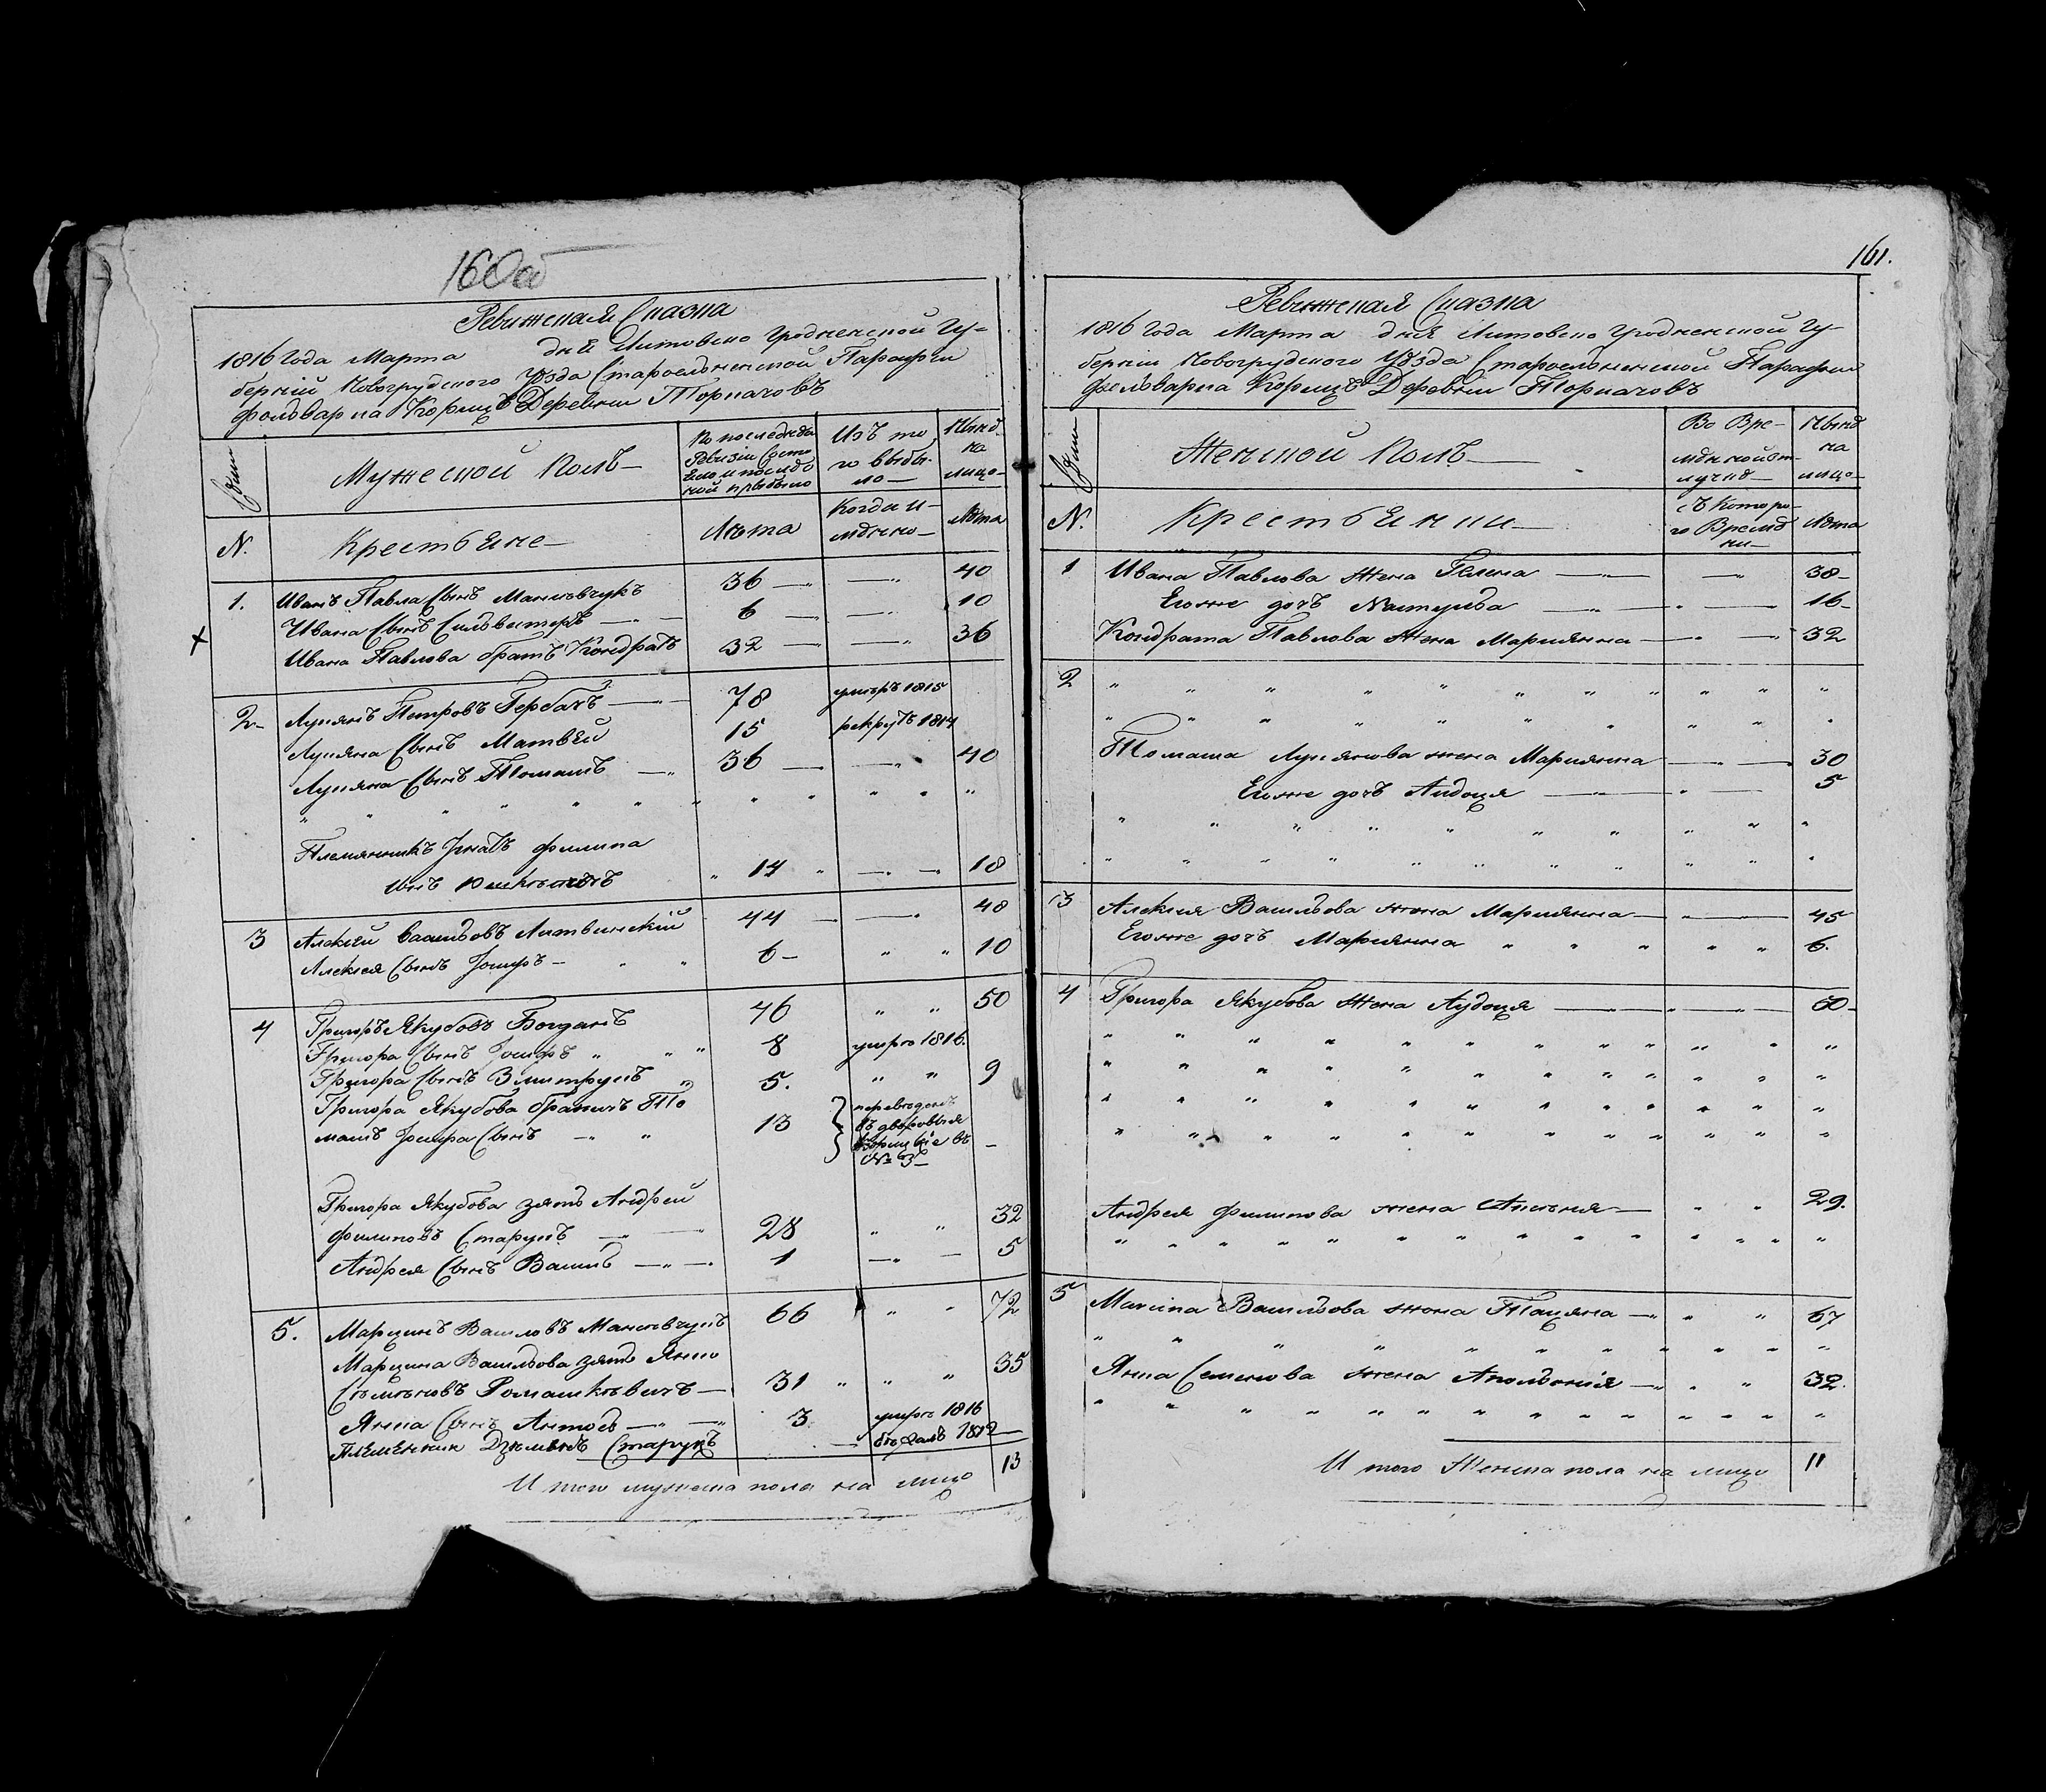 160об
Ревижская Сказка
1816 Года Марта дня Литовско Гродненской Гу-
берній Новогрудского Уѣзда Староельненской Парафіи
фольварка Корицъ Деревни Торкачовъ
Мужеской Полъ
По последнѣй Ревизіи Состояло и послѣ
Изъ то го выбы- ло
Нынѣ на лицо
N. Крестьяне Лѣта Когда и- мянно Лѣта
1. Иванъ Павла Сынъ Маньковчукъ 36 40
Ивана Сынъ Сильвестеръ 6 10
Ивана Павлова братъ Кондратъ 32 36
2 Лукянъ Петровъ Гербачъ 78 умеръ 1815
Лукяна Сынъ Матвѣй 15 рекрутъ 1814
Лукяна Сынъ Томашъ 36 40
Племянникъ Игнатъ Филипа
Сынъ 14 18
3 Алексѣй Васильовъ Литвинскій 44 48
Алексея Сынъ Іосифъ 6 10
4 Григоръ Якубовъ Богданъ 46 50
Григора Сынъ Іосифъ 8 умеръ 1816.
Григора Сынъ Змитрукъ 5. 9
Григора Якубова братичъ То
машъ Іосифа Сынъ 13 переведенъ
въ дворовыя
Корицкіе въ
№ 3
Григора Якубова зять Андрей
Филиповъ Старукъ 28 32
Андрея Сынъ Василь 1 5
5. Марцинъ Васильовъ Маньковчукъ 66 72
Марцина Васильова зять Янко
Сѣмѣновъ Ромашкѣвичъ 31 35
Янка Сынъ Антось 3 умеръ 1816
Племенник Старукъ бѣжалъ 1812
И того мужеска пола на лицо 13
161.
Ревижская Сказка
1816 Года Марта дня Литовско Гродненской Гу-
берніи Новогрудского Уѣзда Староельненской Парафіи
фольварка Корицъ Деревни Торкачовъ
Женской Полъ
Во Вре- мянной от- лучкѣ
Нынѣ на лицо
N. Крестьянки Съ Которо- го Времѣ ни Лѣта
1 Ивана Павлова жена Гелена 38
Егоже дочъ Настуся 16
Кондрата Павлова жена Марянна 32
2
Томаша Лукянова жена Марянна 30
Егоже дочъ Авдоця 5
3 Алексея Васильова жона Марянна 45
Егоже дочъ Марянна 6.
4 Григора Якубова жена Аудоця 50
Андрея Филипова жена 29.
5 Марцина Васильова жона Тацяна 67
Янка Семенова жена Аполонія 32.
И того Женска пола на лицо 11